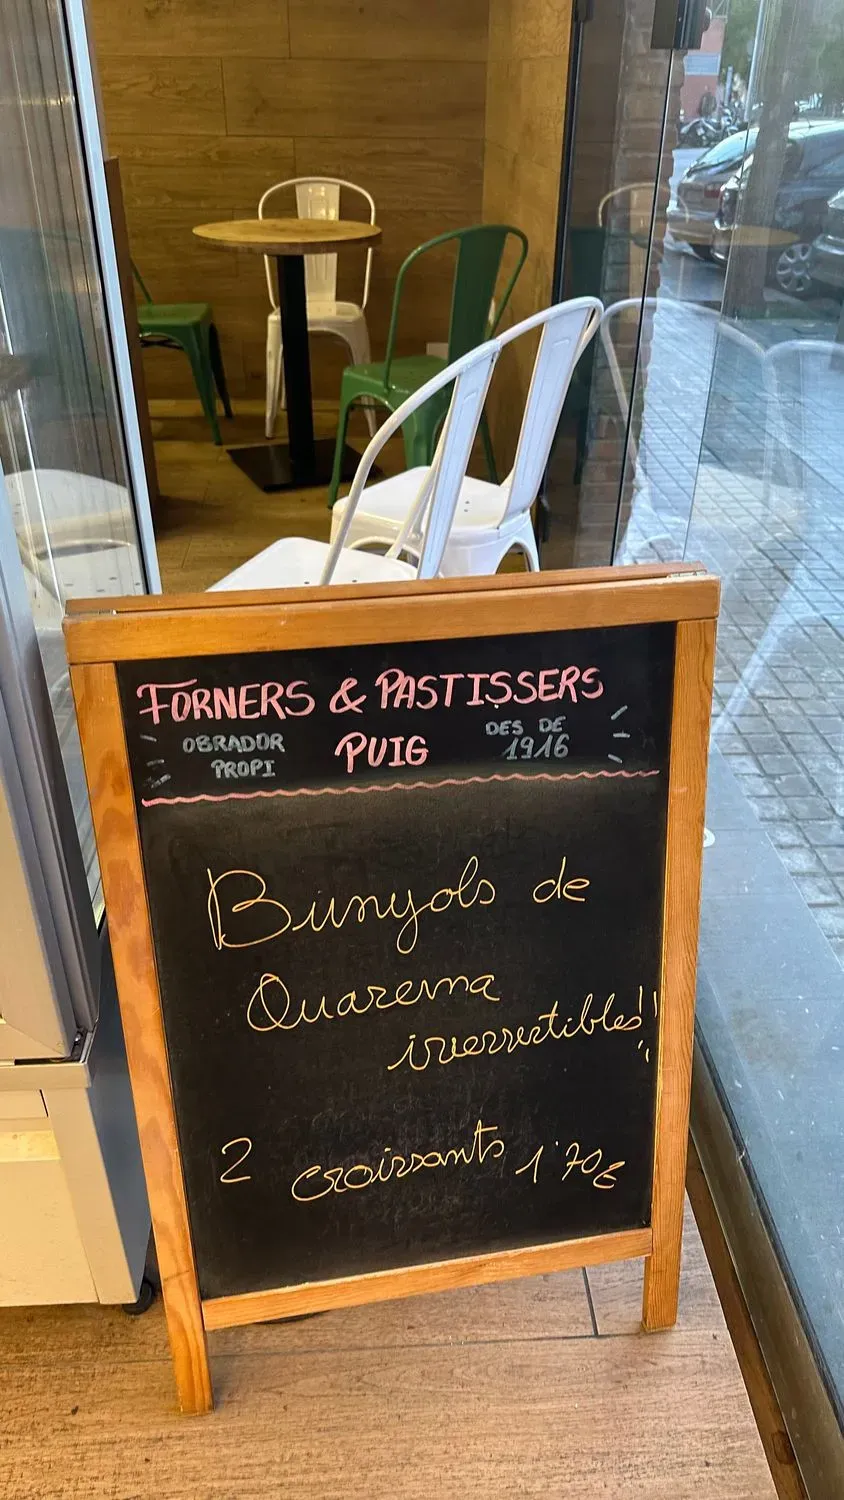 FORNERS & PASTISSERS
OBRADOR PROPI
PUIG
DES DE 1916
Bunyols de
Quaresma
irresistibles!!
2 croissants 1'70€